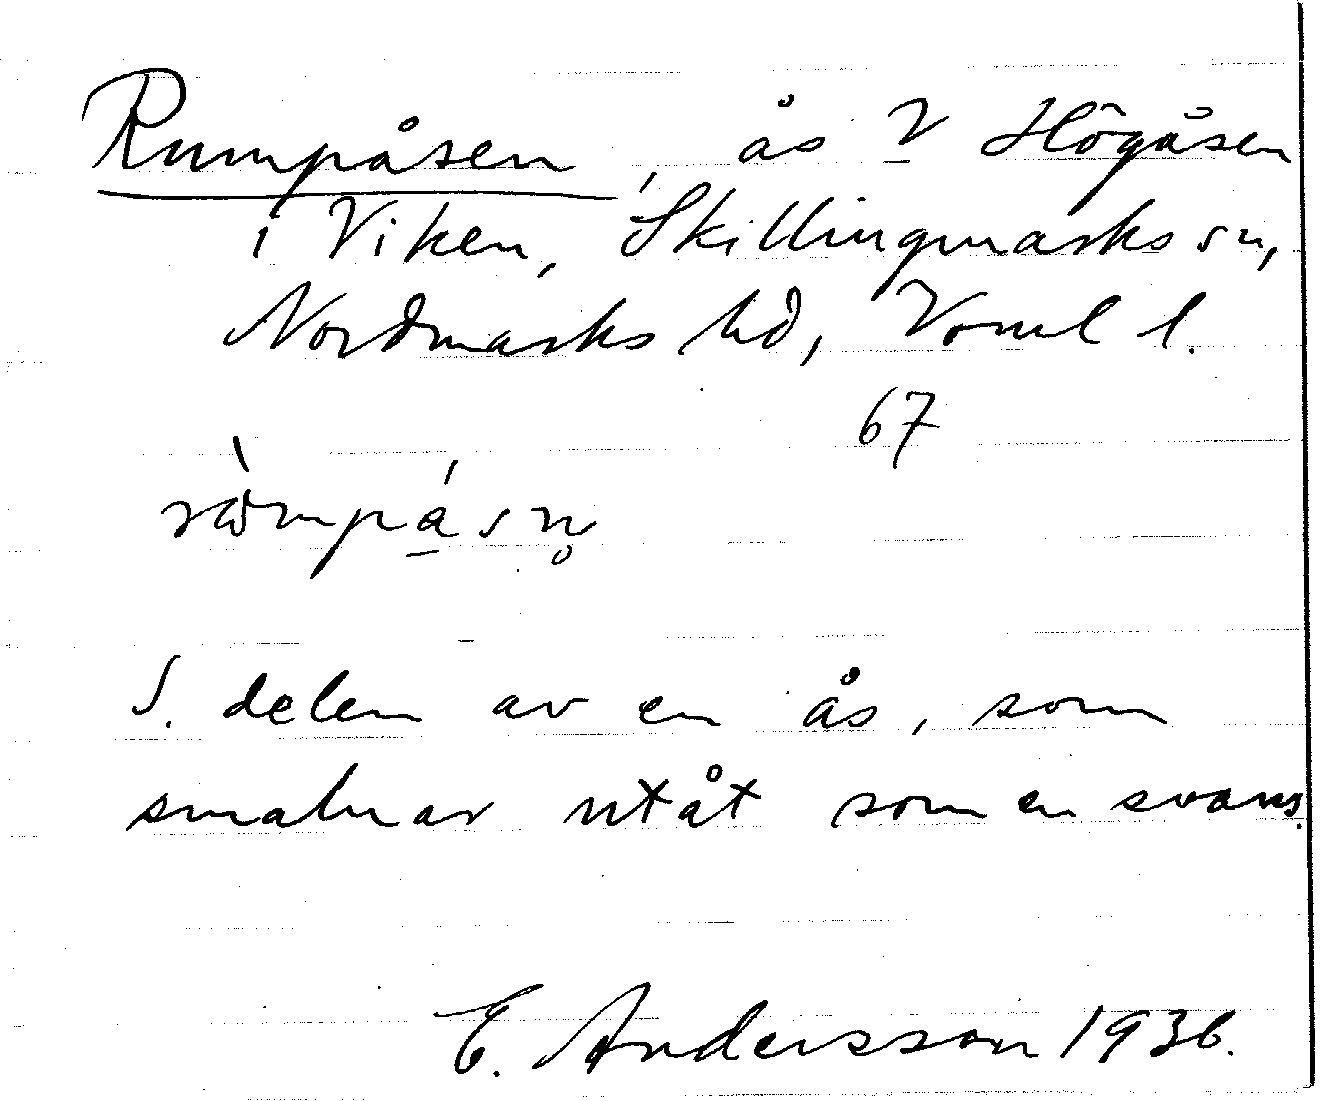 Rumpåsen, ås V Högåsen
i Viken, Skillingmarks sn,
Nordmarks hd, Värml l.
67
S. delen av en ås, som
smalnar utåt som en svans.
E. Andersson 1936.